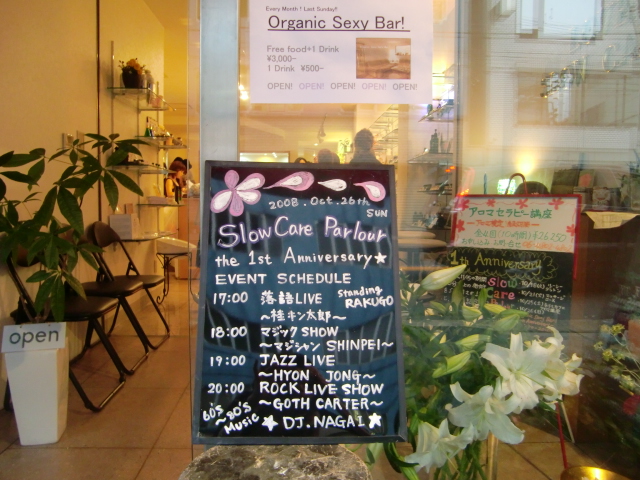 Every Month ! Last Sunday!!
Organic Sexy Bar!
Free food+1 Drink
¥3,000~
1 Drink ¥500~
OPEN! OPEN! OPEN! OPEN! OPEN!
2008. Oct. 26th
SUN
Slow Care Parlour
the 1st Anniversary★
EVENT SCHEDULE
17:00 落語LIVE Standing RAKUGO
～桂キン太郎～
18:00 マジックSHOW
～マジシャン SHINPEI～
19:00 JAZZ LIVE
～HYON JONG～
20:00 ROCK LIVE SHOW
～GOTH CARTER～
60's ～80's Music
★ DJ.NAGAI ★
open
アロマセラピー講座
¥26250
1th Anniversary
Slow
Care